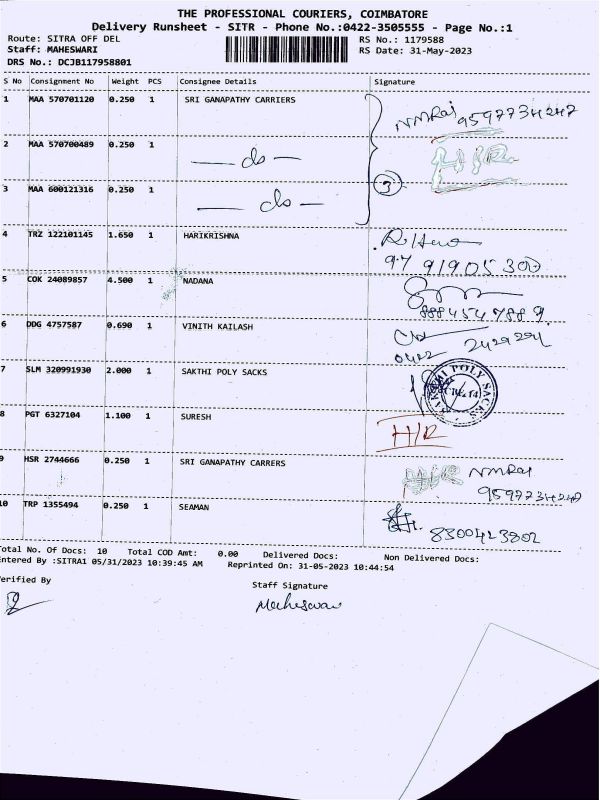 THE PROFESSIONAL COURIERS, COIMBATORE
Delivery Runsheet - SITR - Phone No.:0422-3505555 - Page No.:1
Route: SITRA OFF DEL RS No.: 1179588
Staff: MAHESWARI RS Date: 31-May-2023
DRS No.: DCJB117958801
S No Consignment No Weight PCS Consignee Details Signature
1 MAA 570701120 0.250 1 SRI GANAPATHY CARRIERS NMRaj 9597734247
2 MAA 570700489 0.250 1 — do — H/R
3 MAA 600121316 0.250 1 — do — 3
4 TRZ 122101145 1.650 1 HARIKRISHNA
97 91905 300
5 COK 24089857 4.500 1 NADANA
8884547889
6 DDG 4757587 0.690 1 VINITH KAILASH
0422 2429291
7 SLM 320991930 2.000 1 SAKTHI POLY SACKS SAKTHI POLY SACKS
8 PGT 6327104 1.100 1 SURESH H/R
9 HSR 2744666 0.250 1 SRI GANAPATHY CARRERS H/R NMRaj
9597734247
10 TRP 1355494 0.250 1 SEAMAN 8300423802
Total No. Of Docs: 10 Total COD Amt: 0.00 Delivered Docs: Non Delivered Docs:
Entered By :SITRA1 05/31/2023 10:39:45 AM Reprinted On: 31-05-2023 10:44:54
Verified By Staff Signature
Maheswari